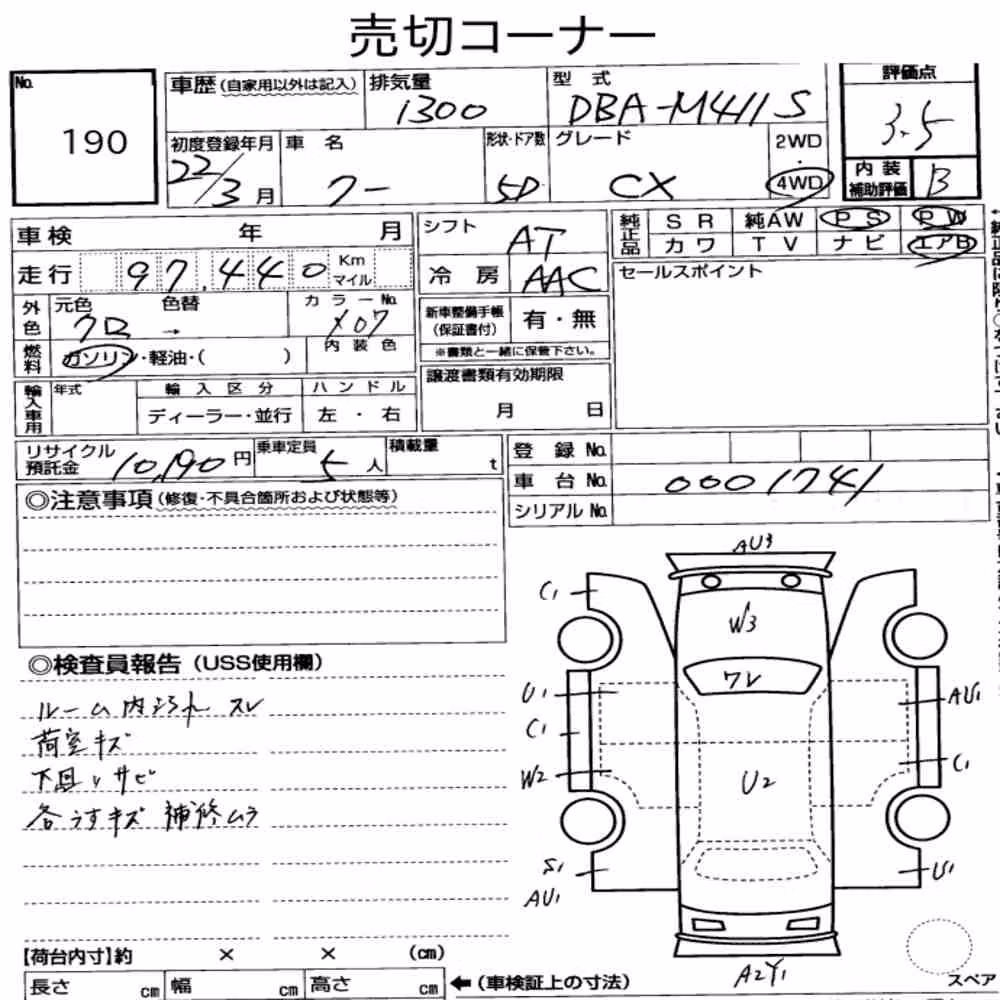 売切コーナー
No.
190
車歴(自家用以外は記入)
排気量
1300
型式
DBA-M411S
評価点
3.5
初度登録年月
22/3月
車名
クー
形状・ドア数
5D
グレード
CX
2WD
・
4WD
内装
補助評価
B
車検 年 月
走行 97,440 Km
マイル
シフト
AT
冷房
AAC
純正品
SR 純AW PS PW
カワ TV ナビ エアB
セールスポイント
外色
元色 色替
クロ →
カラーNo.
X07
燃料
ガソリン・軽油・( )
内装色
新車整備手帳
(保証書付)
有・無
※書類と一緒に保管下さい。
輸入車用
年式
輸入区分
ディーラー・並行
ハンドル
左・右
譲渡書類有効期限
月 日
リサイクル
預託金
10,190円
乗車定員
5人
積載量
t
登録No.
車台No.
0001741
シリアルNo.
◎注意事項(修復・不具合箇所および状態等)
◎検査員報告(USS使用欄)
ルーム内シート スレ
荷室キズ
下回りサビ
各うすキズ 補修ムラ
AU3
C1
W3
ワレ
U1
AU1
C1
C1
W2
U2
S1
AU1
U1
A2Y1
スペア
【荷台内寸】約 × × (cm)
長さ cm 幅 cm 高さ cm
←(車検証上の寸法)